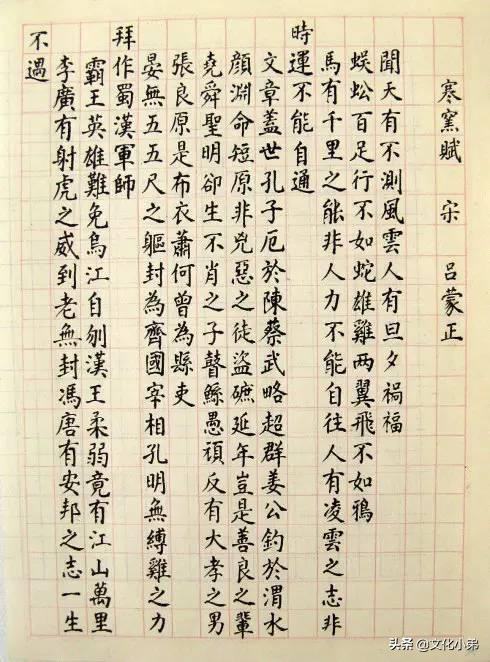 寒窯賦 宋 呂蒙正
聞天有不測風雲人有旦夕禍福
蜈蚣百足行不如蛇雄雞两翼飛不如鴉
馬有千里之能非人力不能自往人有凌雲之志非
時運不能自通
文章蓋世孔子厄於陳蔡武略超群姜公釣於渭水
顏淵命短原非兇惡之徒盜蹠延年豈是善良之輩
堯舜聖明卻生不肖之子瞽鯀愚頑反有大孝之男
張良原是布衣蕭何曾為縣吏
晏無五五尺之軀封為齊國宰相孔明無縛雞之力
拜作蜀漢軍師
霸王英雄難免烏江自刎漢王柔弱竟有江山萬里
李廣有射虎之威到老無封馮唐有安邦之志一生
不遇
头条 @文化小弟